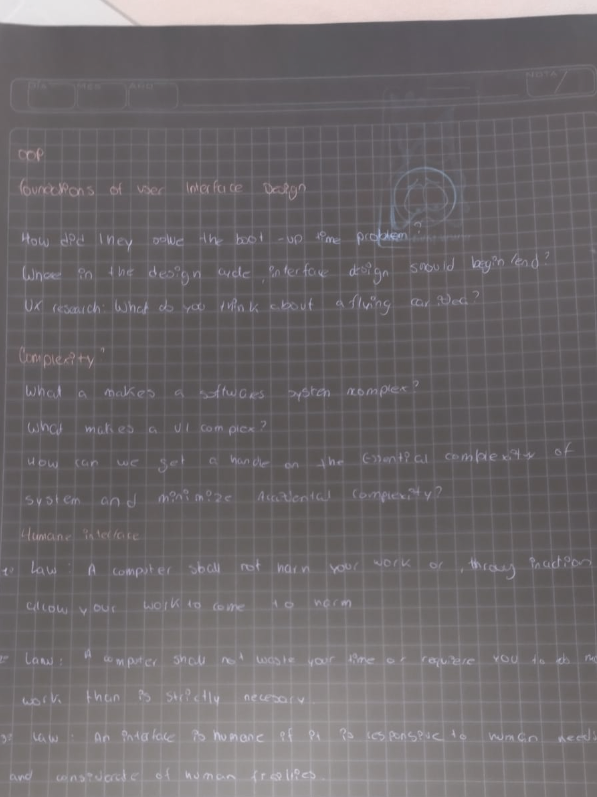 NOTA
OOP
foundations of user Interface Design
How did they solve the boot-up time problem?
Where in the design cycle, interface design should begin/end?
UX research: What do you think about a flying car idea?
Complexity
What a makes a softwares system complex?
What makes a UI complex?
How can we get a hande on the Essential complexity of
system and minimize Accidental complexity?
Humane interface
Law: A computer shall not harm your work or, throug inaction
allow your work to come to harm
Law: A computer shall not waste your time or require you to do
work than is strictly necessary
Law: An interface is humane if it is responsive to human needs
and considerate of human frailties.